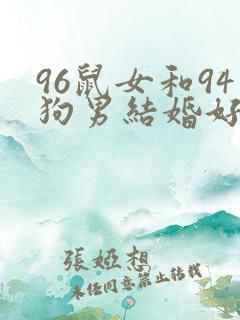 96鼠女和94
狗男結婚好
張婭想
未任同意禁止转载